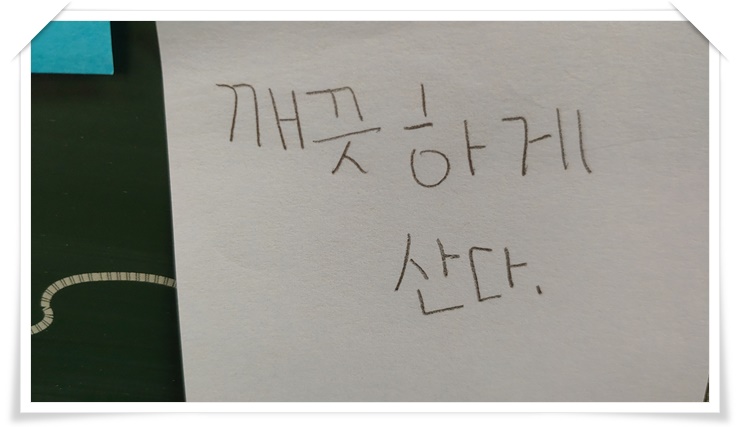 깨끗하게
산다.